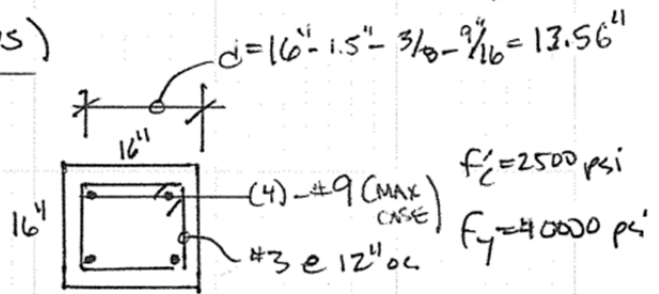 s)
d=16"-1.5"-3/8-9/16"=13.56"
16"
16"
(4)-#9 (MAX CASE)
#3 @ 12" oc
f'c=2500 psi
Fy=40000 psi